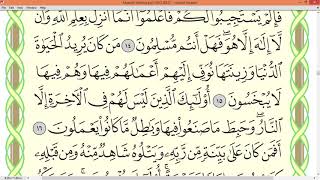 فَإِلَّمْ يَسْتَجِيبُوا۟ لَكُمْ فَٱعْلَمُوٓا۟ أَنَّمَآ أُنزِلَ بِعِلْمِ ٱللَّهِ وَأَن
لَّآ إِلَٰهَ إِلَّا هُوَ ۖ فَهَلْ أَنتُم مُّسْلِمُونَ ١٤ مَن كَانَ يُرِيدُ ٱلْحَيَوٰةَ
ٱلدُّنْيَا وَزِينَتَهَا نُوَفِّ إِلَيْهِمْ أَعْمَٰلَهُمْ فِيهَا وَهُمْ فِيهَا
لَا يُبْخَسُونَ ١٥ أُو۟لَٰٓئِكَ ٱلَّذِينَ لَيْسَ لَهُمْ فِى ٱلْءَاخِرَةِ إِلَّا
ٱلنَّارُ ۖ وَحَبِطَ مَا صَنَعُوا۟ فِيهَا وَبَٰطِلٌ مَّا كَانُوا۟ يَعْمَلُونَ ١٦
أَفَمَن كَانَ عَلَىٰ بَيِّنَةٍ مِّن رَّبِّهِۦ وَيَتْلُوهُ شَاهِدٌ مِّنْهُ وَمِن قَبْلِهِۦ